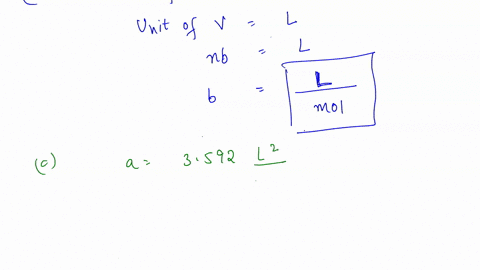 Unit of V = L
nb = L
b = L / mol
(c) a = 3.592 L²